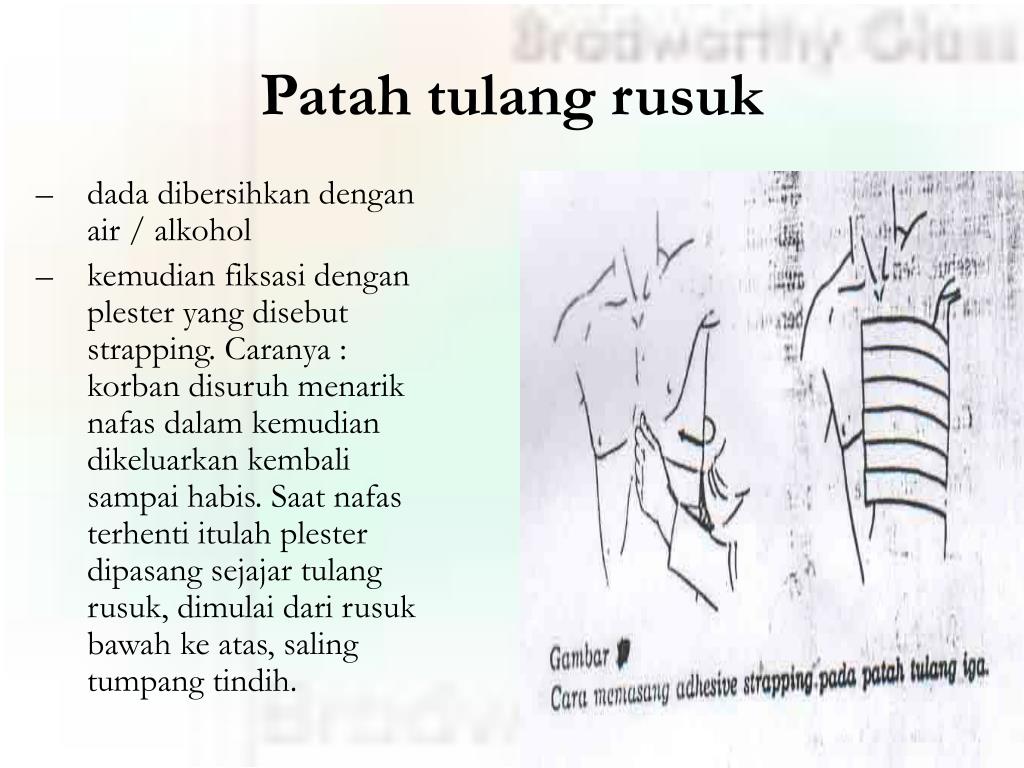 Bradworthy Glass
Patah tulang rusuk
– dada dibersihkan dengan
air / alkohol
– kemudian fiksasi dengan
plester yang disebut
strapping. Caranya :
korban disuruh menarik
nafas dalam kemudian
dikeluarkan kembali
sampai habis. Saat nafas
terhenti itulah plester
dipasang sejajar tulang
rusuk, dimulai dari rusuk
bawah ke atas, saling
tumpang tindih.
Gambar
Cara memasang adhesive strapping pada patah tulang iga.